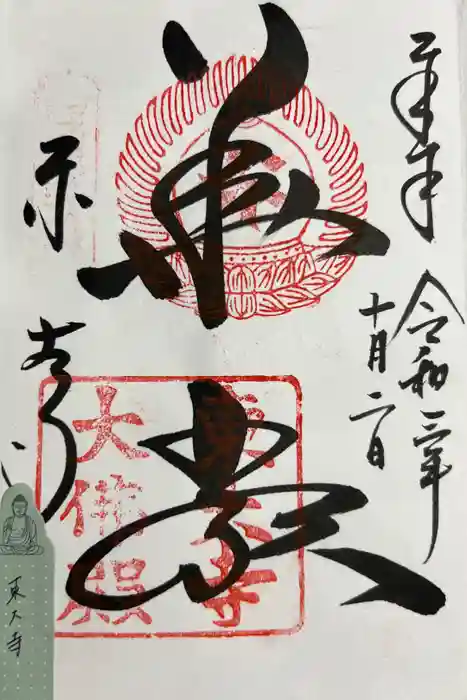 奉拝
令和三年
十月二日
華厳
東大寺
東大寺
大佛殿
東大寺